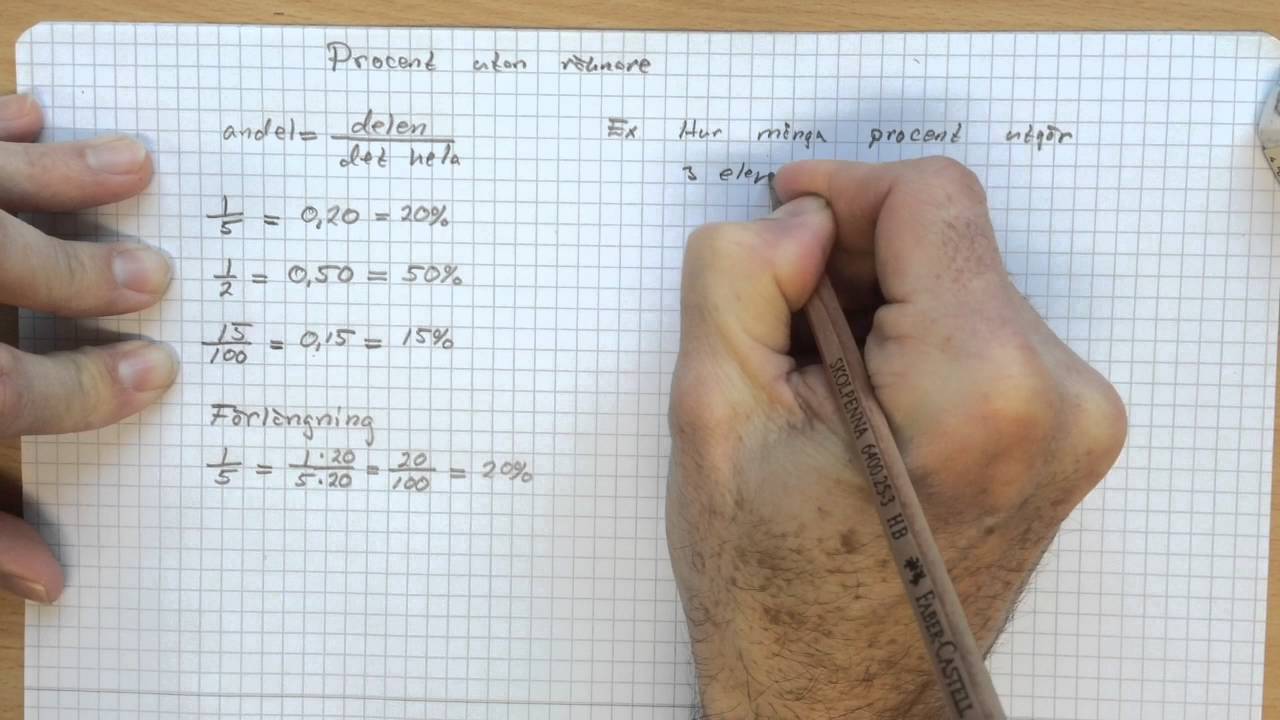 Procent utan räknare
andel = delen / det hela
1/5 = 0,20 = 20%
1/2 = 0,50 = 50%
15/100 = 0,15 = 15%
Förlängning
1/5 = 1·20/5·20 = 20/100 = 20%
Ex Hur många procent utgör
3 elev
SKOLPENNA 6400:25-3 HB FABER-CASTELL